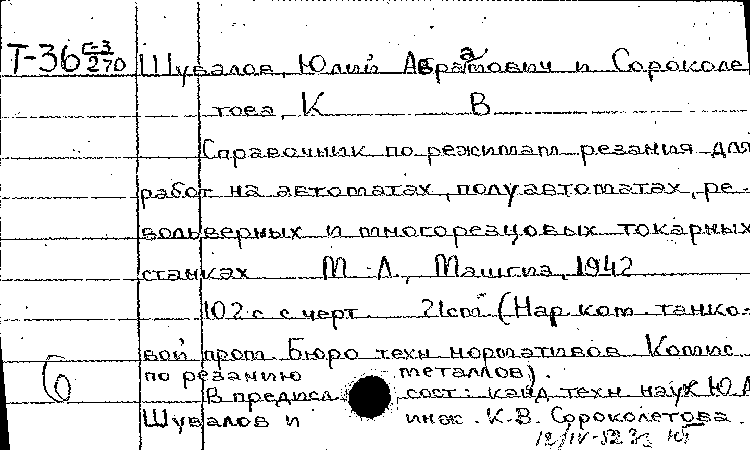 Т-36 Г-3/270 Шувалов, Юлий Абрамович и Сороколе
това, К В
Справочник по режимам резания для
работ на автоматах, полуавтоматах, ре-
вольверных и многорезцовых токарных
станках М.-Л., Машгиз, 1942
102 с. с черт. 21cm (Нар. ком. танко-
вой пром. Бюро техн. нормативов. Комис.
по резанию металлов).
В предисл. сост.: канд. техн. наук Ю.А.
6 Шувалов и инж. К.В. Сороколетова.
12/IV-52